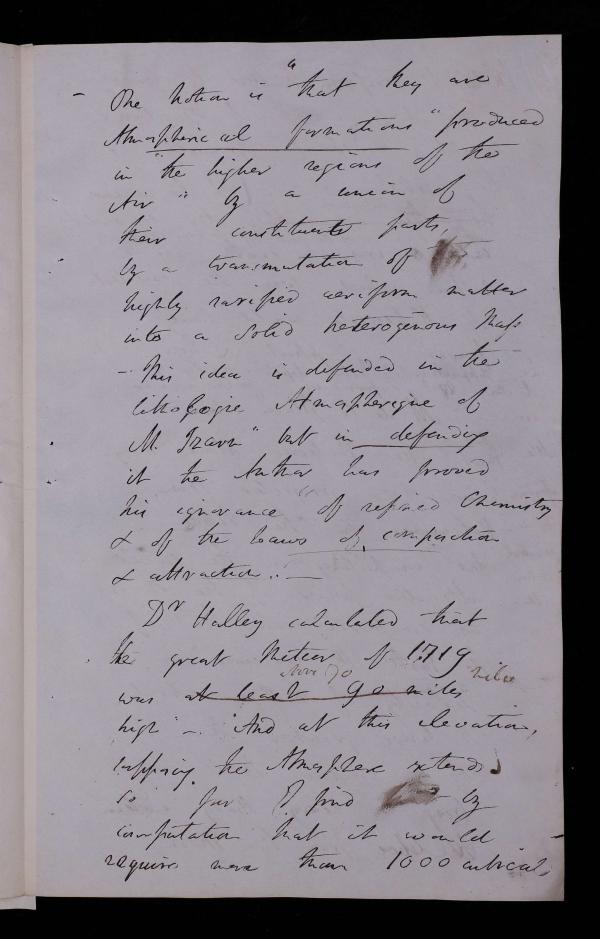 One notion is " that they are
Atmospherical formations " produced
in " the higher regions of the
Air " by a union of
their constituent parts,
by a transmutation of
highly rarified aeriform matter
into a solid heterogenous Mass
- This idea is defended in the
lithologie Atmospherique of
M. Izarn " but in defending
it the Author has proved
his ignorance " of refined Chemistry
& of the laws of composition
& attraction. : —
Dr Halley calculated that
the great Meteor of 1719
above 70 miles
was at least 90 miles
high - And at this elevation,
supposing the Atmosphere extends
so far I find by
computation that it would
require more than 1000 cubical